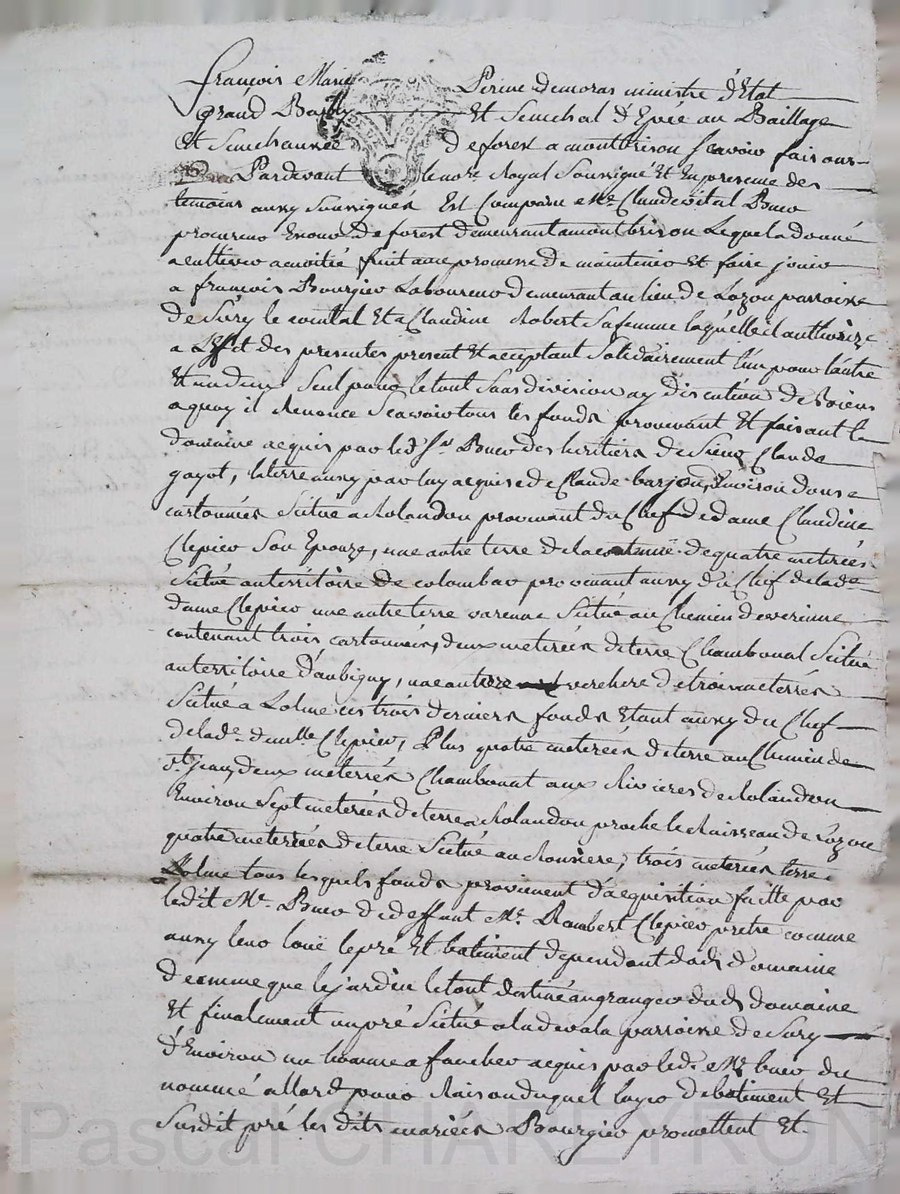 françois Marie Perinc demoras ministre d'Etat
Grand Bailly Et Senechal d'Epée au Baillage
Et Senechaussée de forest a montbrison scavoir faisons
que Pardevant le no.re Royal Soussigné Et En presence des
temoins aussy soussignés Est Comparu M.e Claude vital Buer
procureur Es cour de forest demeurant a montbrison Lequel a donné
a cultiver a moitié fruit avec promesse de maintenir Et faire jouir
a françois Bourgier Laboureur demeurant au lieu de Lozon parroisse
de Sury le comtal Et a Claudine Robert Sa femme laquelle il authorize
a L'effet des presentes present Et acceptant Solidairement l'un pour l'autre
Et un deux Seul pour le tout Sans division ny discution de biens
a quoy il Renonce Scavoir tous les fonds provenant Et faisant le
domaine acquis par led. S.r Buer des heritiers de Sieur Claude
gayot, la terre aussy par luy acquise de Claude barjon, d'Environ douse
cartonnées Scitué a Rolandon provenant du Chef de dame Claudine
Clepier Son Epouze, une autre terre de la contenuë de quatre meterées
Scitué au territoire de colombar provenant aussy du Chef de lad.e
dame Clepier une autre terre varenne Scitué au Chemin de
contenant trois cartonnées, deux meterées de terre Chambonal Scitué
au territoire d'aubigny, une autre verchere de trois meterées
Scitué a Lolme ces trois derniers fonds Etant aussy du Chef
de lad.e dam.lle Clepier, Plus quatre meterées de terre au Chemin de
S.t jean, deux meterées Chambonal aux Rivieres de Rolandon
Environ Sept meterées de terre a Rolandon proche le Ruisseau de Lozon
quatre meterées de terre Scitué au, trois meterées terre a
Lolme tous lesquels fonds provienent d'acquisition faitte par
ledit M.e Buer de deffunt M.e Rambert Clepier pretre comme
aussy leur louë le pré Et batiment dependant dud. domaine
de comme que le jardin le tout destiné au granger dud. domaine
Et finalement un pré Scitué a la parroisse de Sury
d'Environ un homme a faucher acquis par led. M.e buer du
nommé allard pour Raison duquel bator de batiment Et
Susdit pré les dits mariés Bourgier promettent Et
Pascal CHAREYRON